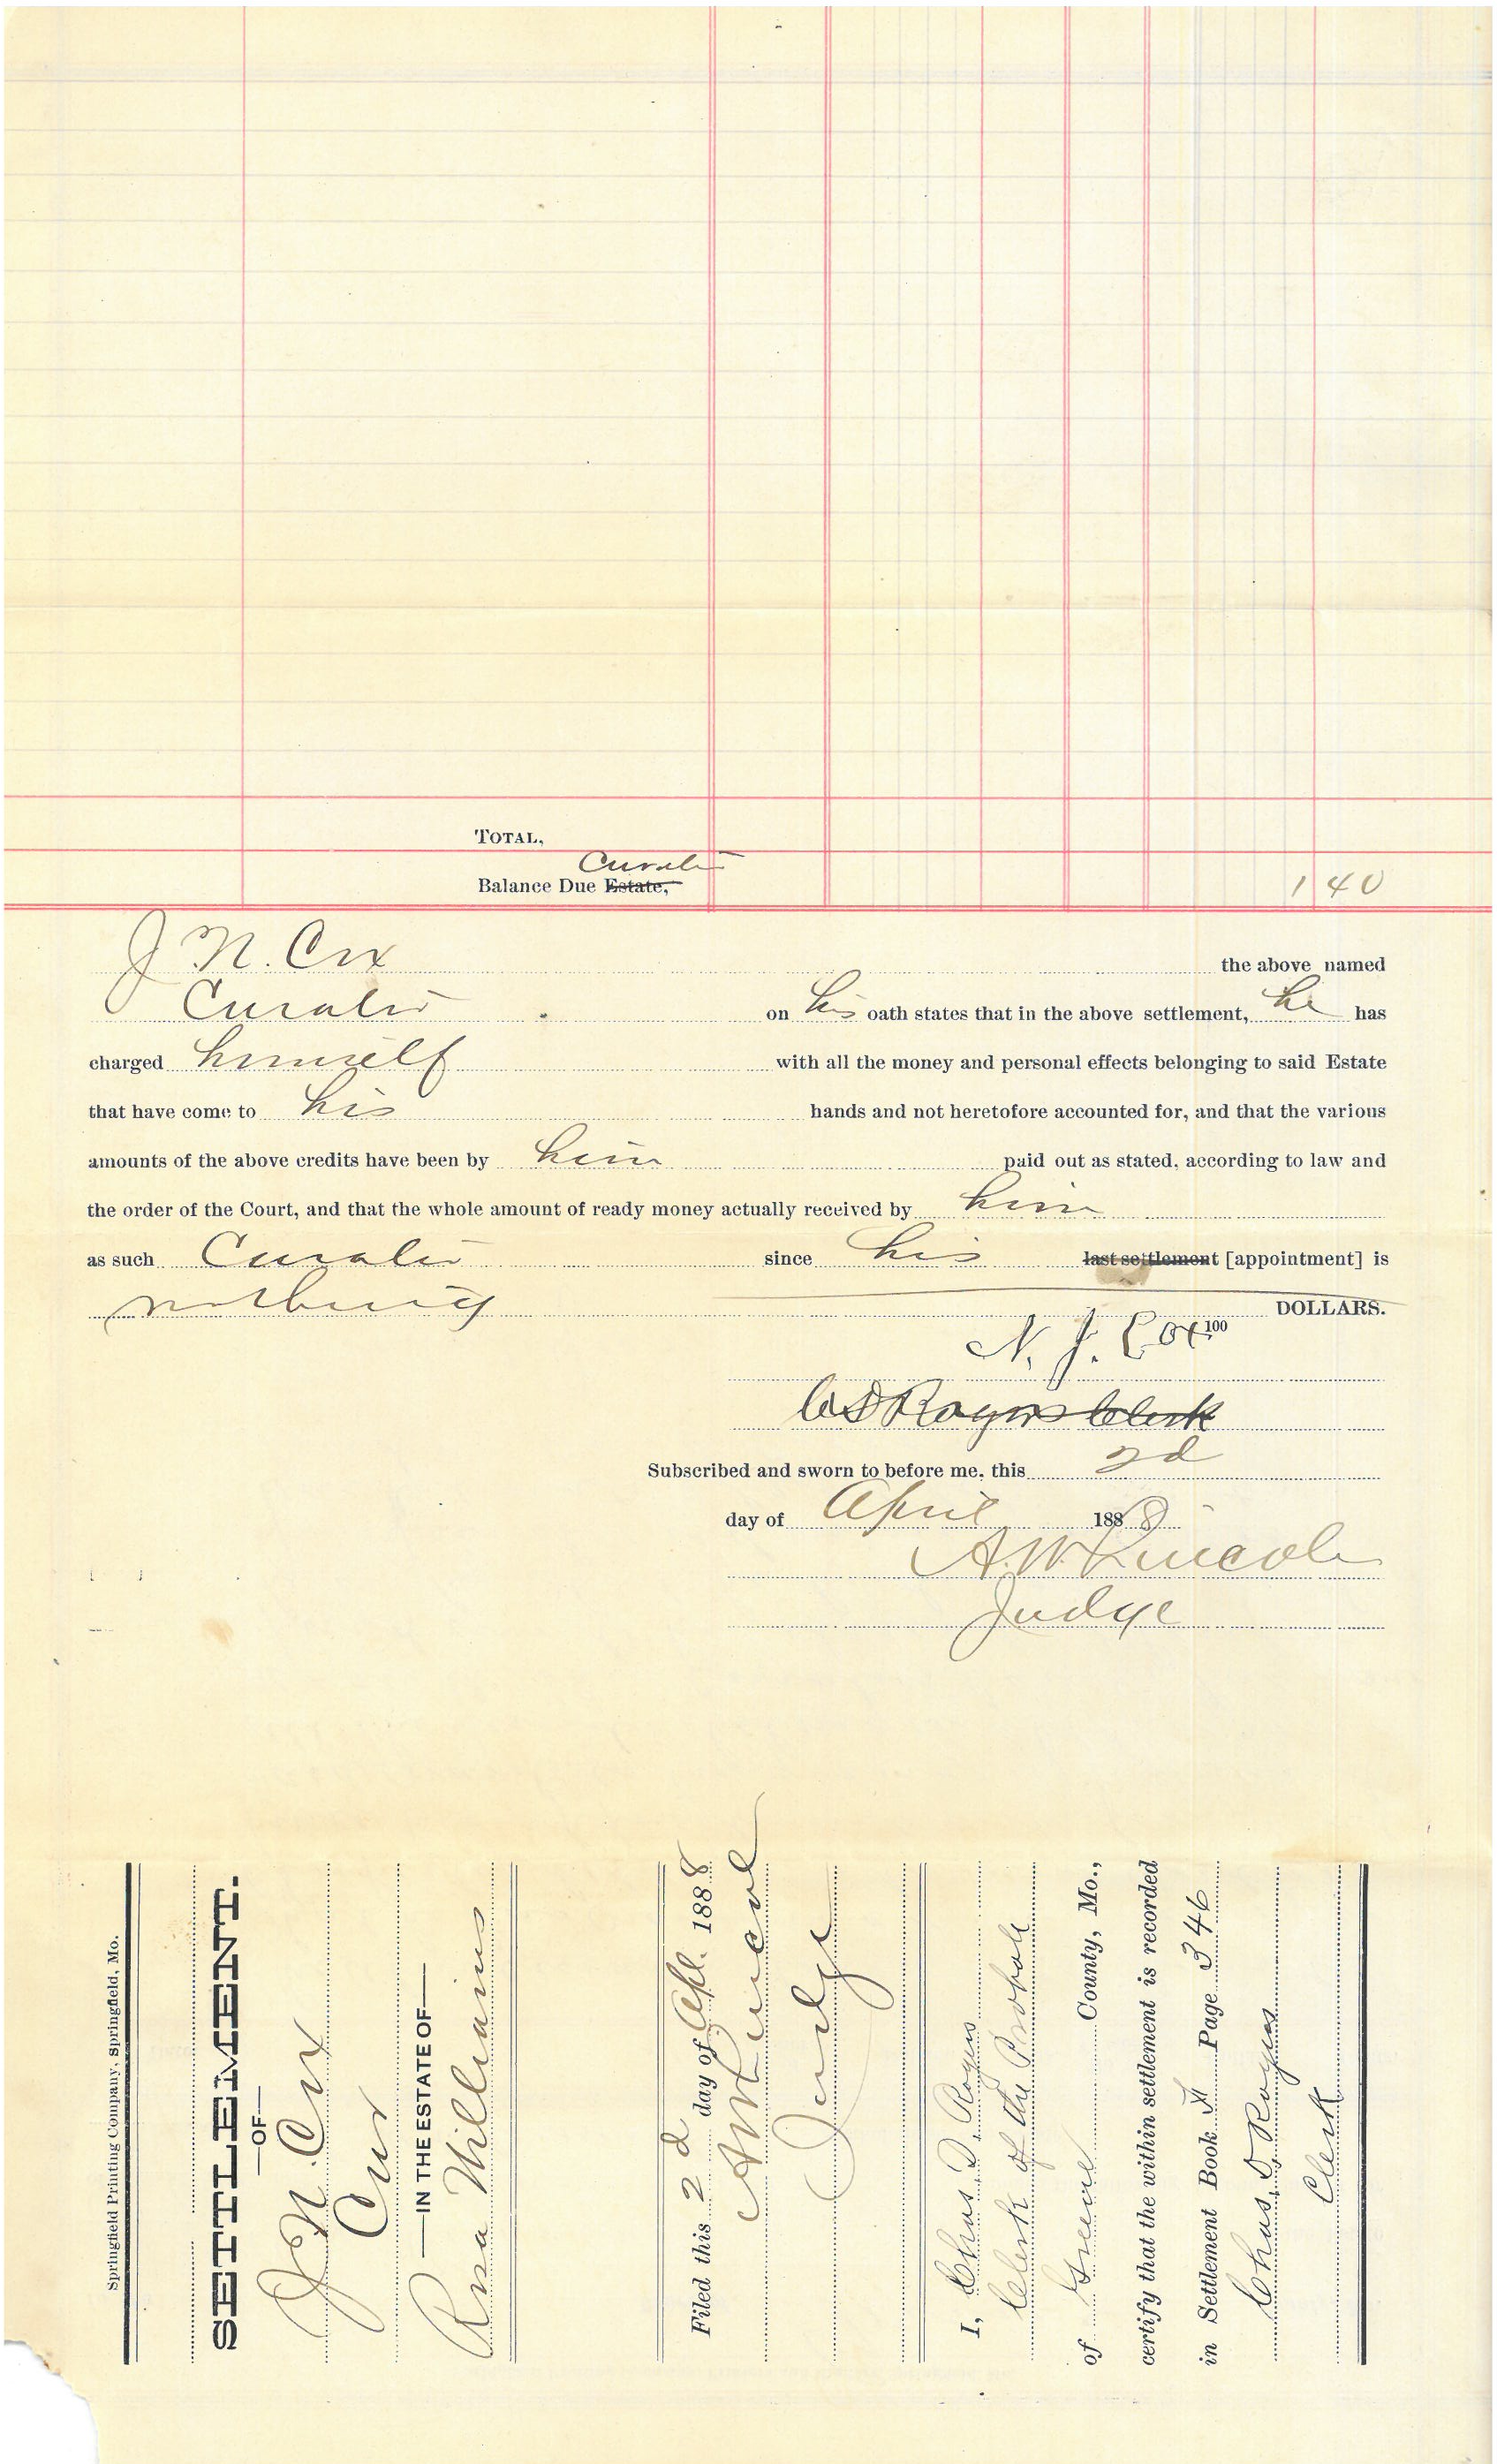 TOTAL,
Curator
Balance Due Estate, 1 40
J N. Cox the above named
Curator on his oath states that in the above settlement, he has
charged himself with all the money and personal effects belonging to said Estate
that have come to his hands and not heretofore accounted for, and that the various
amounts of the above credits have been by him paid out as stated, according to law and
the order of the Court, and that the whole amount of ready money actually received by him
as such Curator since his last settlement [appointment] is
nothing DOLLARS.
100
N. J. Cox
C D Rogers Clerk
Subscribed and sworn to before me, this 2d
day of April 1888
A. W. Lincoln
Judge
Springfield Printing Company, Springfield, Mo.
SETTLEMENT.
—OF—
J N Cox
Cur
—IN THE ESTATE OF—
Rosa Williams
Filed this 2d day of Apl. 1888
A W Lincoln
Judge
I, Chas. D. Rogers
Clerk of the Probate
of Greene County, Mo.,
certify that the within settlement is recorded
in Settlement Book H Page 346
Chas. D. Rogers
Clerk